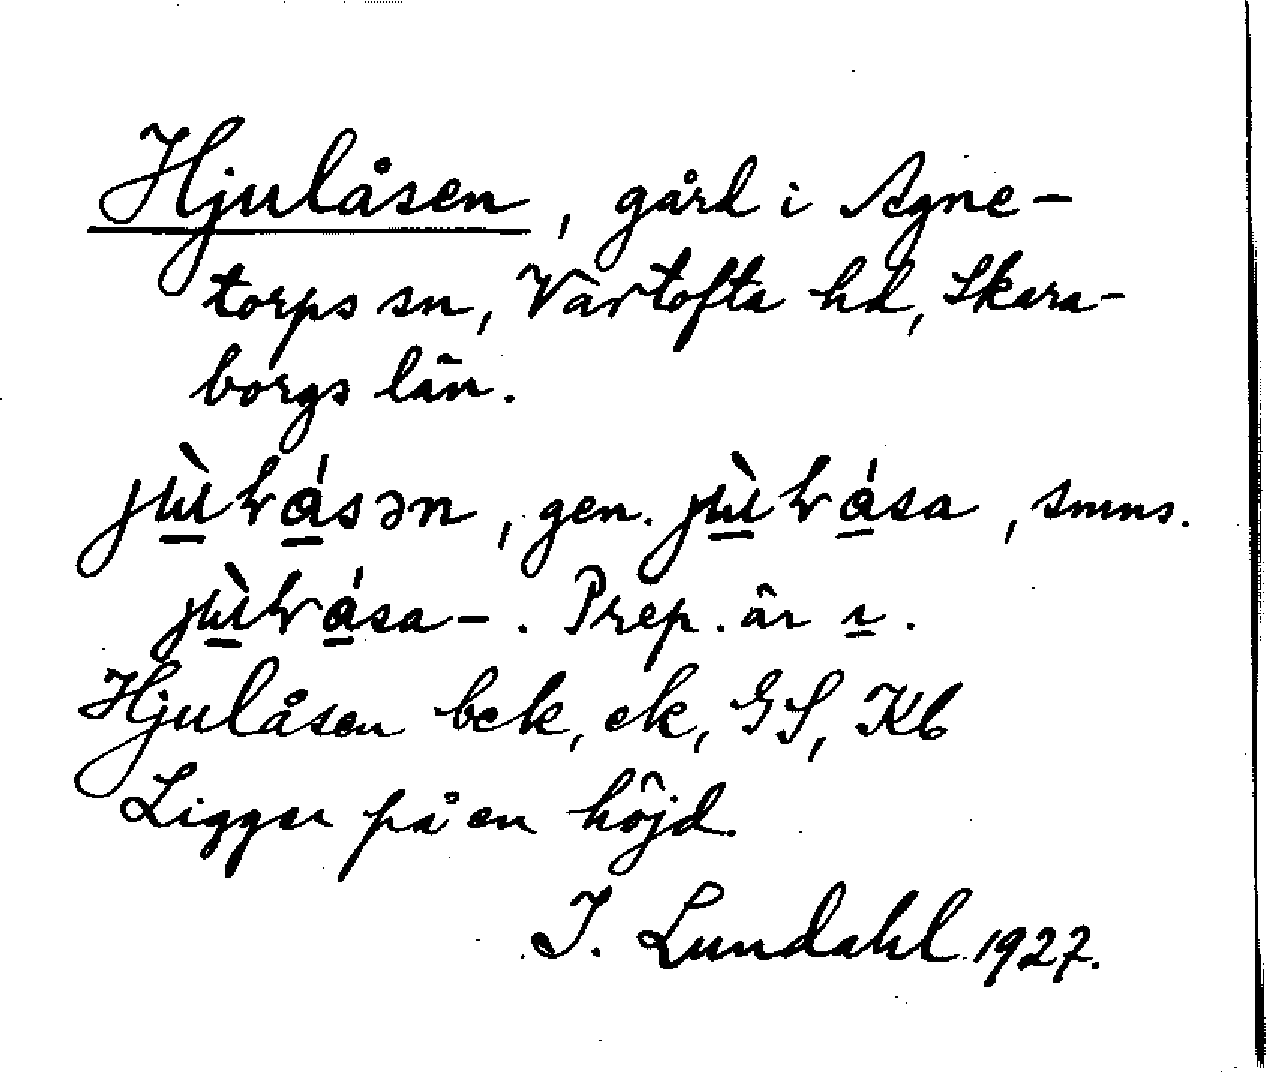 Hjulåsen, gård i Agne-
torps sn, Vartofta hd, Skara-
borgs län.
, gen. , smns.
. Prep. är ı.
Hjulåsen bek, ek, GS, Kb
Ligger på en höjd.
I. Lundahl 1927.